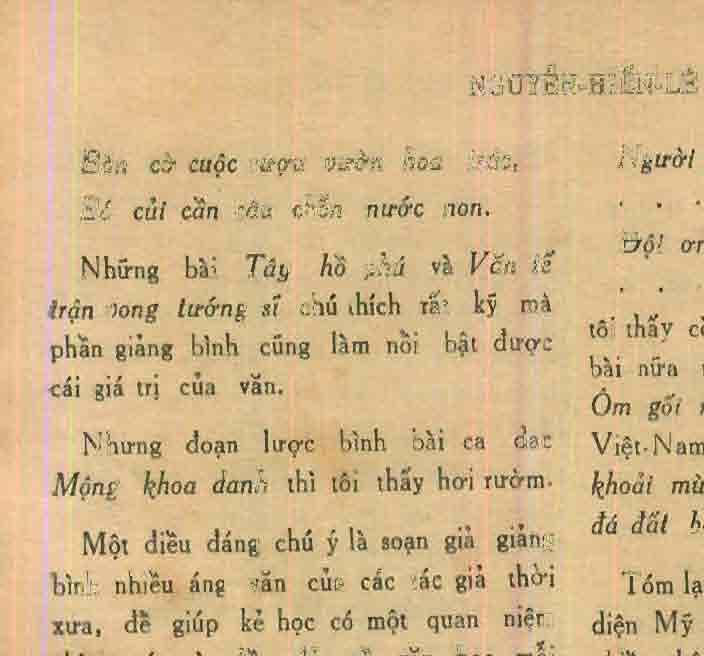 NGUYỄN-HIẾN-LÊ
Bàn cờ cuộc rượu vườn hoa trúc,
Bó củi cần câu chốn nước non.
Những bài Tây hồ phú và Văn tế
trận vong tướng sĩ chú thích rất kỹ mà
phần giảng bình cũng làm nồi bật được
cái giá trị của văn.
Nhưng đoạn lược bình bài ca dao
Mộng khoa danh thì tôi thấy hơi rườm.
Một điều đáng chú ý là soạn giả giảng
bình nhiều áng văn của các tác giả thời
xưa, để giúp kẻ học có một quan niệm
Người
. . .
Đội ơn
. .
tôi thấy
bài nữa
Ôm gối
Việt-Nam
khoải
đá đất
Tóm lạ
diện Mỹ